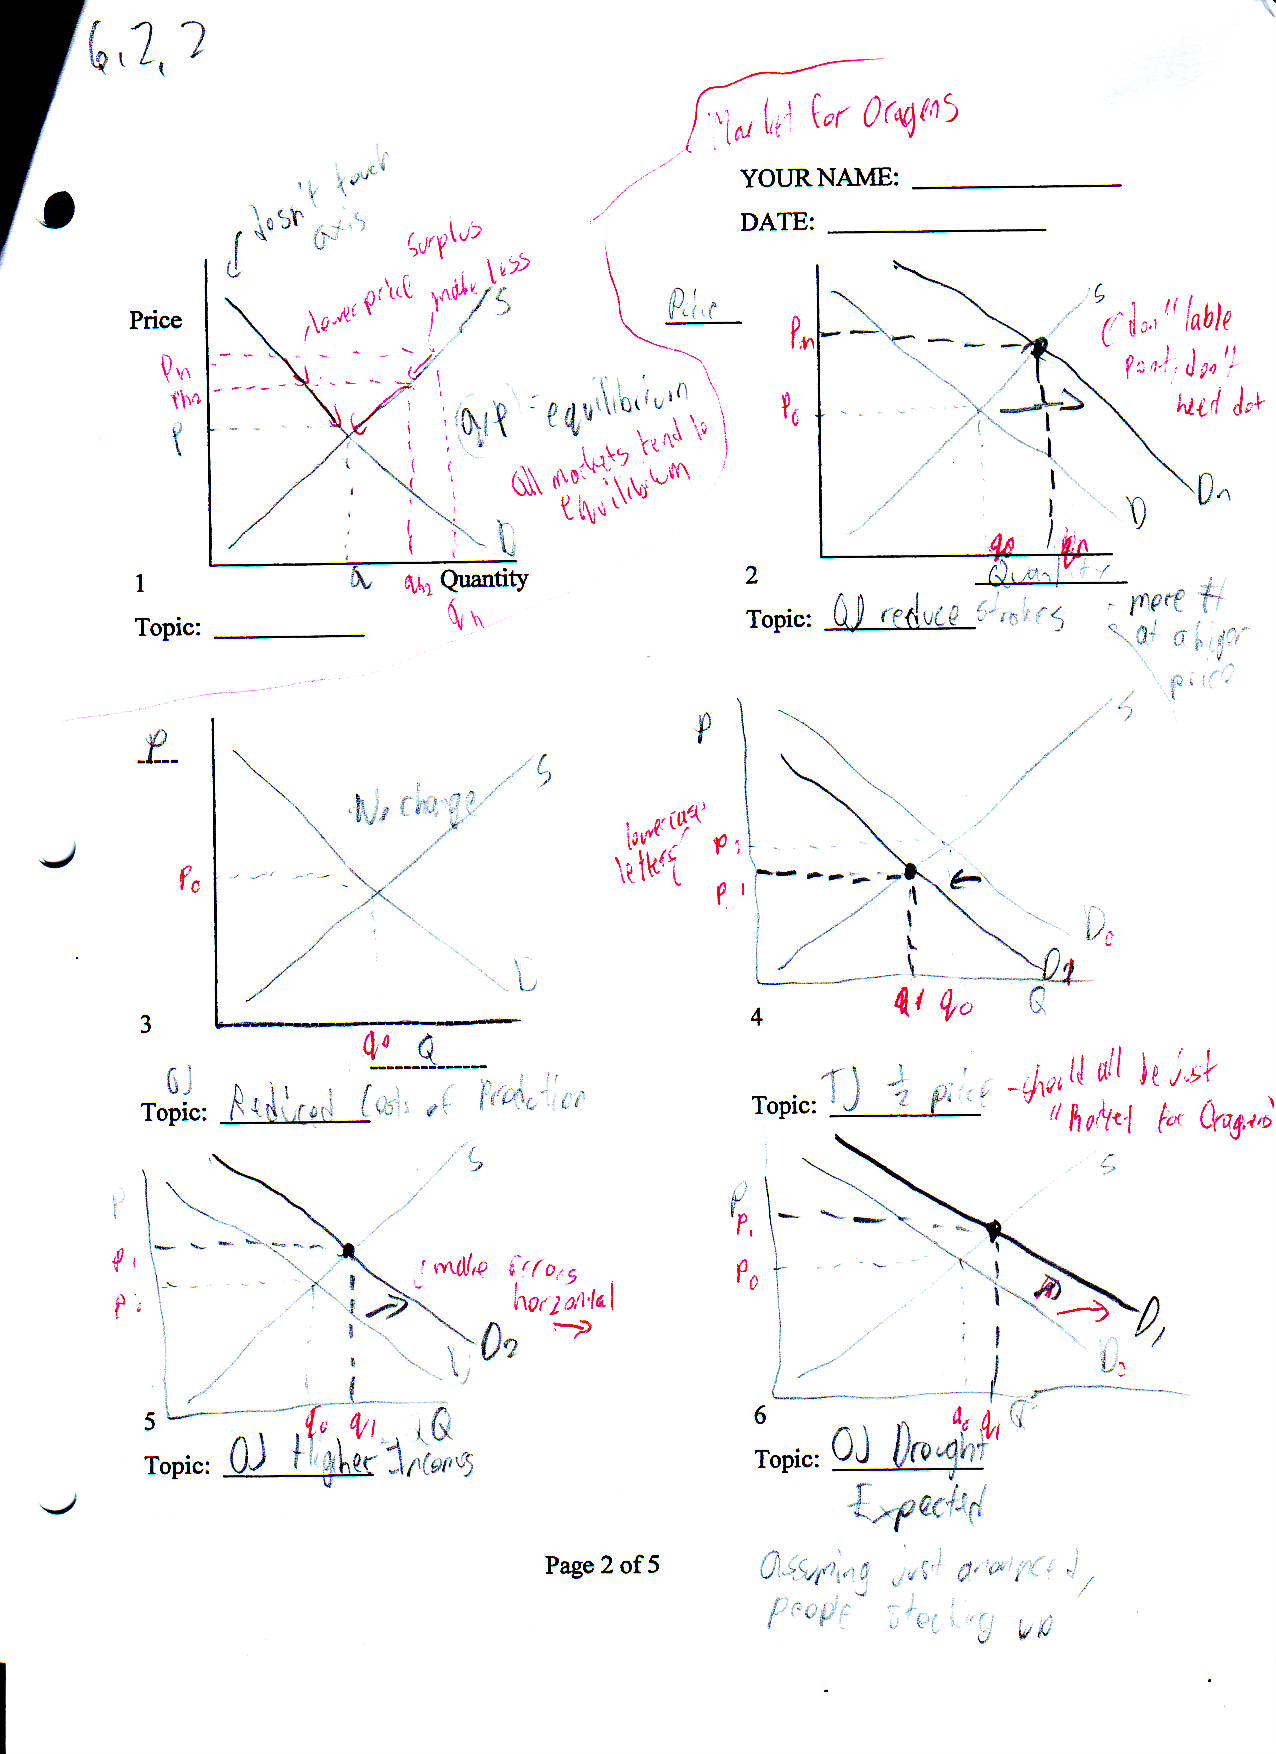 6.2.2
Market for Oragens
YOUR NAME:
DATE:
dosn't touch
axis
surplus
make less
lower price
S
Price
Pn
Ph2
P
q,P = equilibrium
all markets tend to
equilibrium
D
q
qh2
Quantity
qh
1
Topic:
Price
S
Pn
P0
don't lable
point, don't
need dot
Dn
D
q0
qn
Quantity
2
Topic: OJ reduce strokes
- more #
at a higer
price
P
S
No change
P0
D
q0 Q
3
OJ
Topic: Reduced Costs of Prodction
P
S
lowercase
letters
P1
D0
D1
q1 q0 Q
4
Topic: TJ 1/2 price - should all be just
"Market for Oragens"
P
S
P1
make errors
horzontal
D2
D
q0 q1 Q
5
Topic: OJ Higher Incoms
P
S
P1
P0
D1
D0
q0 q1 Q
6
Topic: OJ Drought
Expected
Page 2 of 5
assuming just anounced,
people stocking up